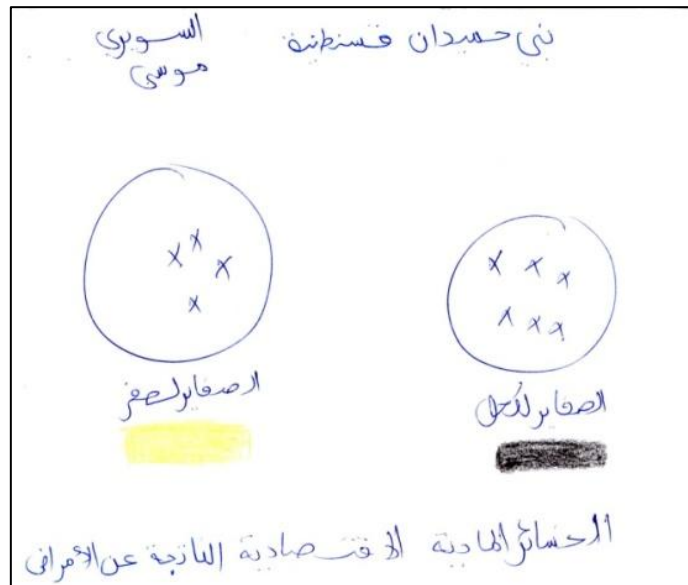 بني حميدان قسنطينة
السويري
موسى
الصفاير لصفر
الصفاير لكحل
الخسائر المادية الاقتصادية الناتجة عن الأمراض